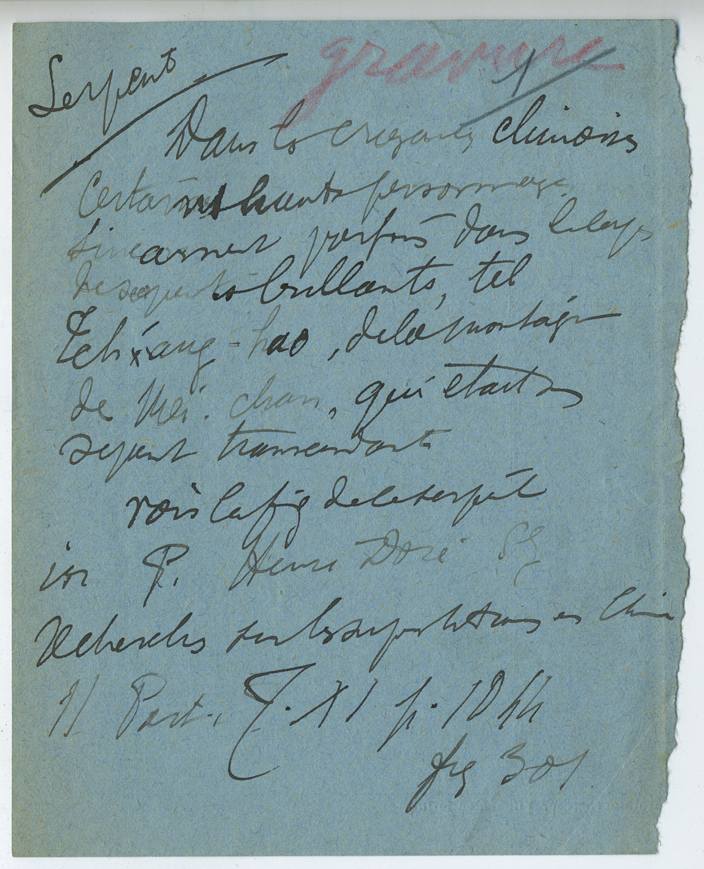 Serpent
gravure
Dans les croyances chinoises
Certains hauts personnages
s'incarnent parfois dans le corps
de serpents brillants, tel
Tch'ang-hao, de la montagne
de Mei-chan, qui était un
serpent transcendant
voir la fig de ce serpent
in P. Henri Doré
Recherches sur les superstitions en Chine
II Part. T. XI p. 1044
fig 301